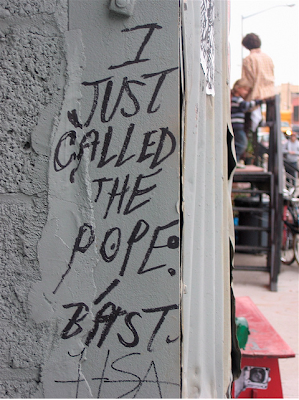 I
JUST
CALLED
THE
POPE.
BÄST.
HSA